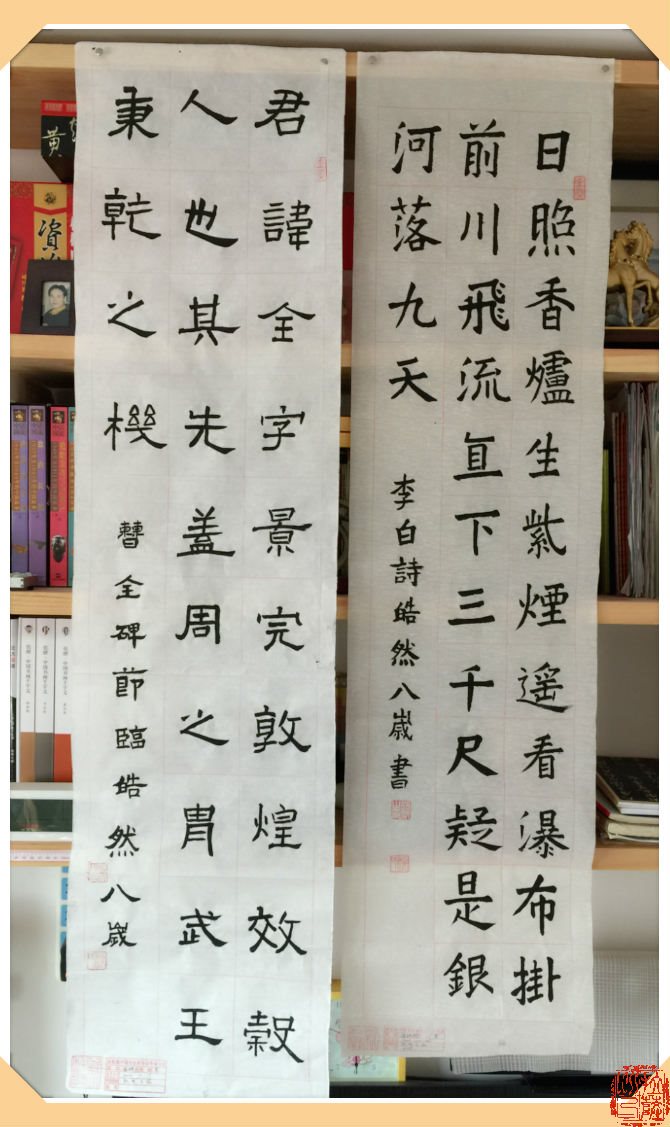 日照香爐生紫煙遥看瀑布掛
前川飛流直下三千尺疑是銀
河落九天
李白詩皓然八歲書
君諱全字景完敦煌效穀
人也其先蓋周之胄武王
秉乾之機
曹全碑節臨皓然八歲
黄
资